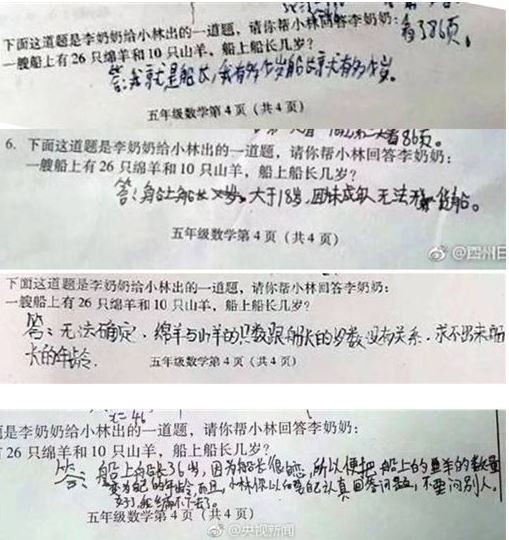 看386页。
下面这道题是李奶奶给小林出的一道题，请你帮小林回答李奶奶：
一艘船上有 26 只绵羊和 10 只山羊，船上船长几岁？
答：我就是船长，我有多少岁船长就有多少岁。
五年级数学第 4 页（共 4 页）
看86页。
6. 下面这道题是李奶奶给小林出的一道题，请你帮小林回答李奶奶：
一艘船上有 26 只绵羊和 10 只山羊，船上船长几岁？
答：船上船长 大于18岁，因未成年人无法开货船。
五年级数学第 4 页（共 4 页）
@四川日
下面这道题是李奶奶给小林出的一道题，请你帮小林回答李奶奶：
一艘船上有 26 只绵羊和 10 只山羊，船上船长几岁？
答：无法确定，绵羊与山羊的只数跟船长的岁数没有关系，求不出来船
长的年龄.
五年级数学第 4 页（共 4 页）
x=46
题是李奶奶给小林出的一道题，请你帮小林回答李奶奶：
26 只绵羊和 10 只山羊，船上船长几岁？
答：船上船长36岁，因为船长很 所以便把船上的 羊的数量
变为自己的年龄，而且，小林你以后要自己认真回答问题，不要问别人。
我编不下去了。
五年级数学第 4 页（共 4 页）
@央视新闻